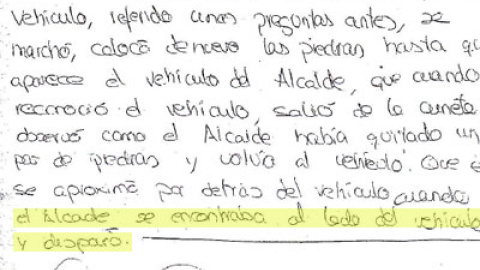 vehículo, referido unas preguntas antes, se
marchó, colocó de nuevo las piedras hasta qu
aparece el vehículo del Alcalde, que cuando
reconoció el vehículo, salió de la cuneta
observó como el Alcalde había quitado un
par de piedras y volvía al vehículo. Que é
se aproximó por detrás del vehículo cuando
el Alcalde se encontraba al lado del vehículo
y disparó.